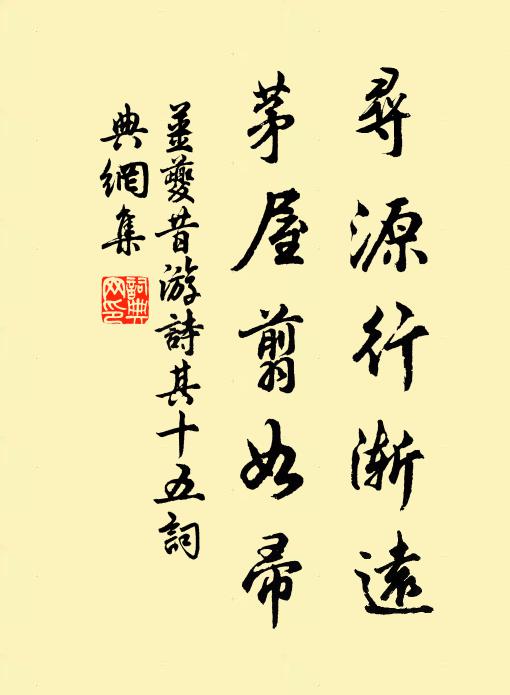 尋源行漸遠
茅屋翦如帚
姜夔昔游詩其十五詞
典網集
詞典網印